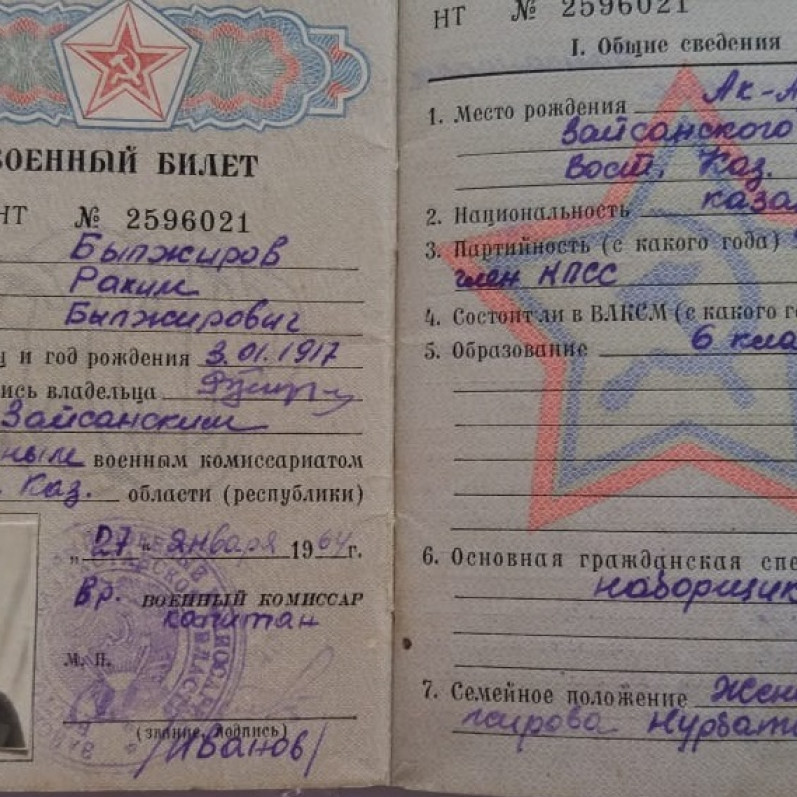 ВОЕННЫЙ БИЛЕТ
НТ № 2596021
Былжиров
Раким
Былжирович
и год рождения 3.01.1917
ись владельца
Зайсанским
ным военным комиссариатом
Каз. области (республики)
„27" января 1964 г.
Вр. ВОЕННЫЙ КОМИССАР
капитан
М. П.
(звание, подпись)
/Иванов/
НТ № 2596021
I. Общие сведения
1. Место рождения Ак-
Зайсанского
Вост. Каз.
2. Национальность каза
3. Партийность (с какого года)
член КПСС
4. Состоит ли в ВЛКСМ (с какого г
5. Образование 6 кла
6. Основная гражданская спе
наборщик
7. Семейное положение Жен